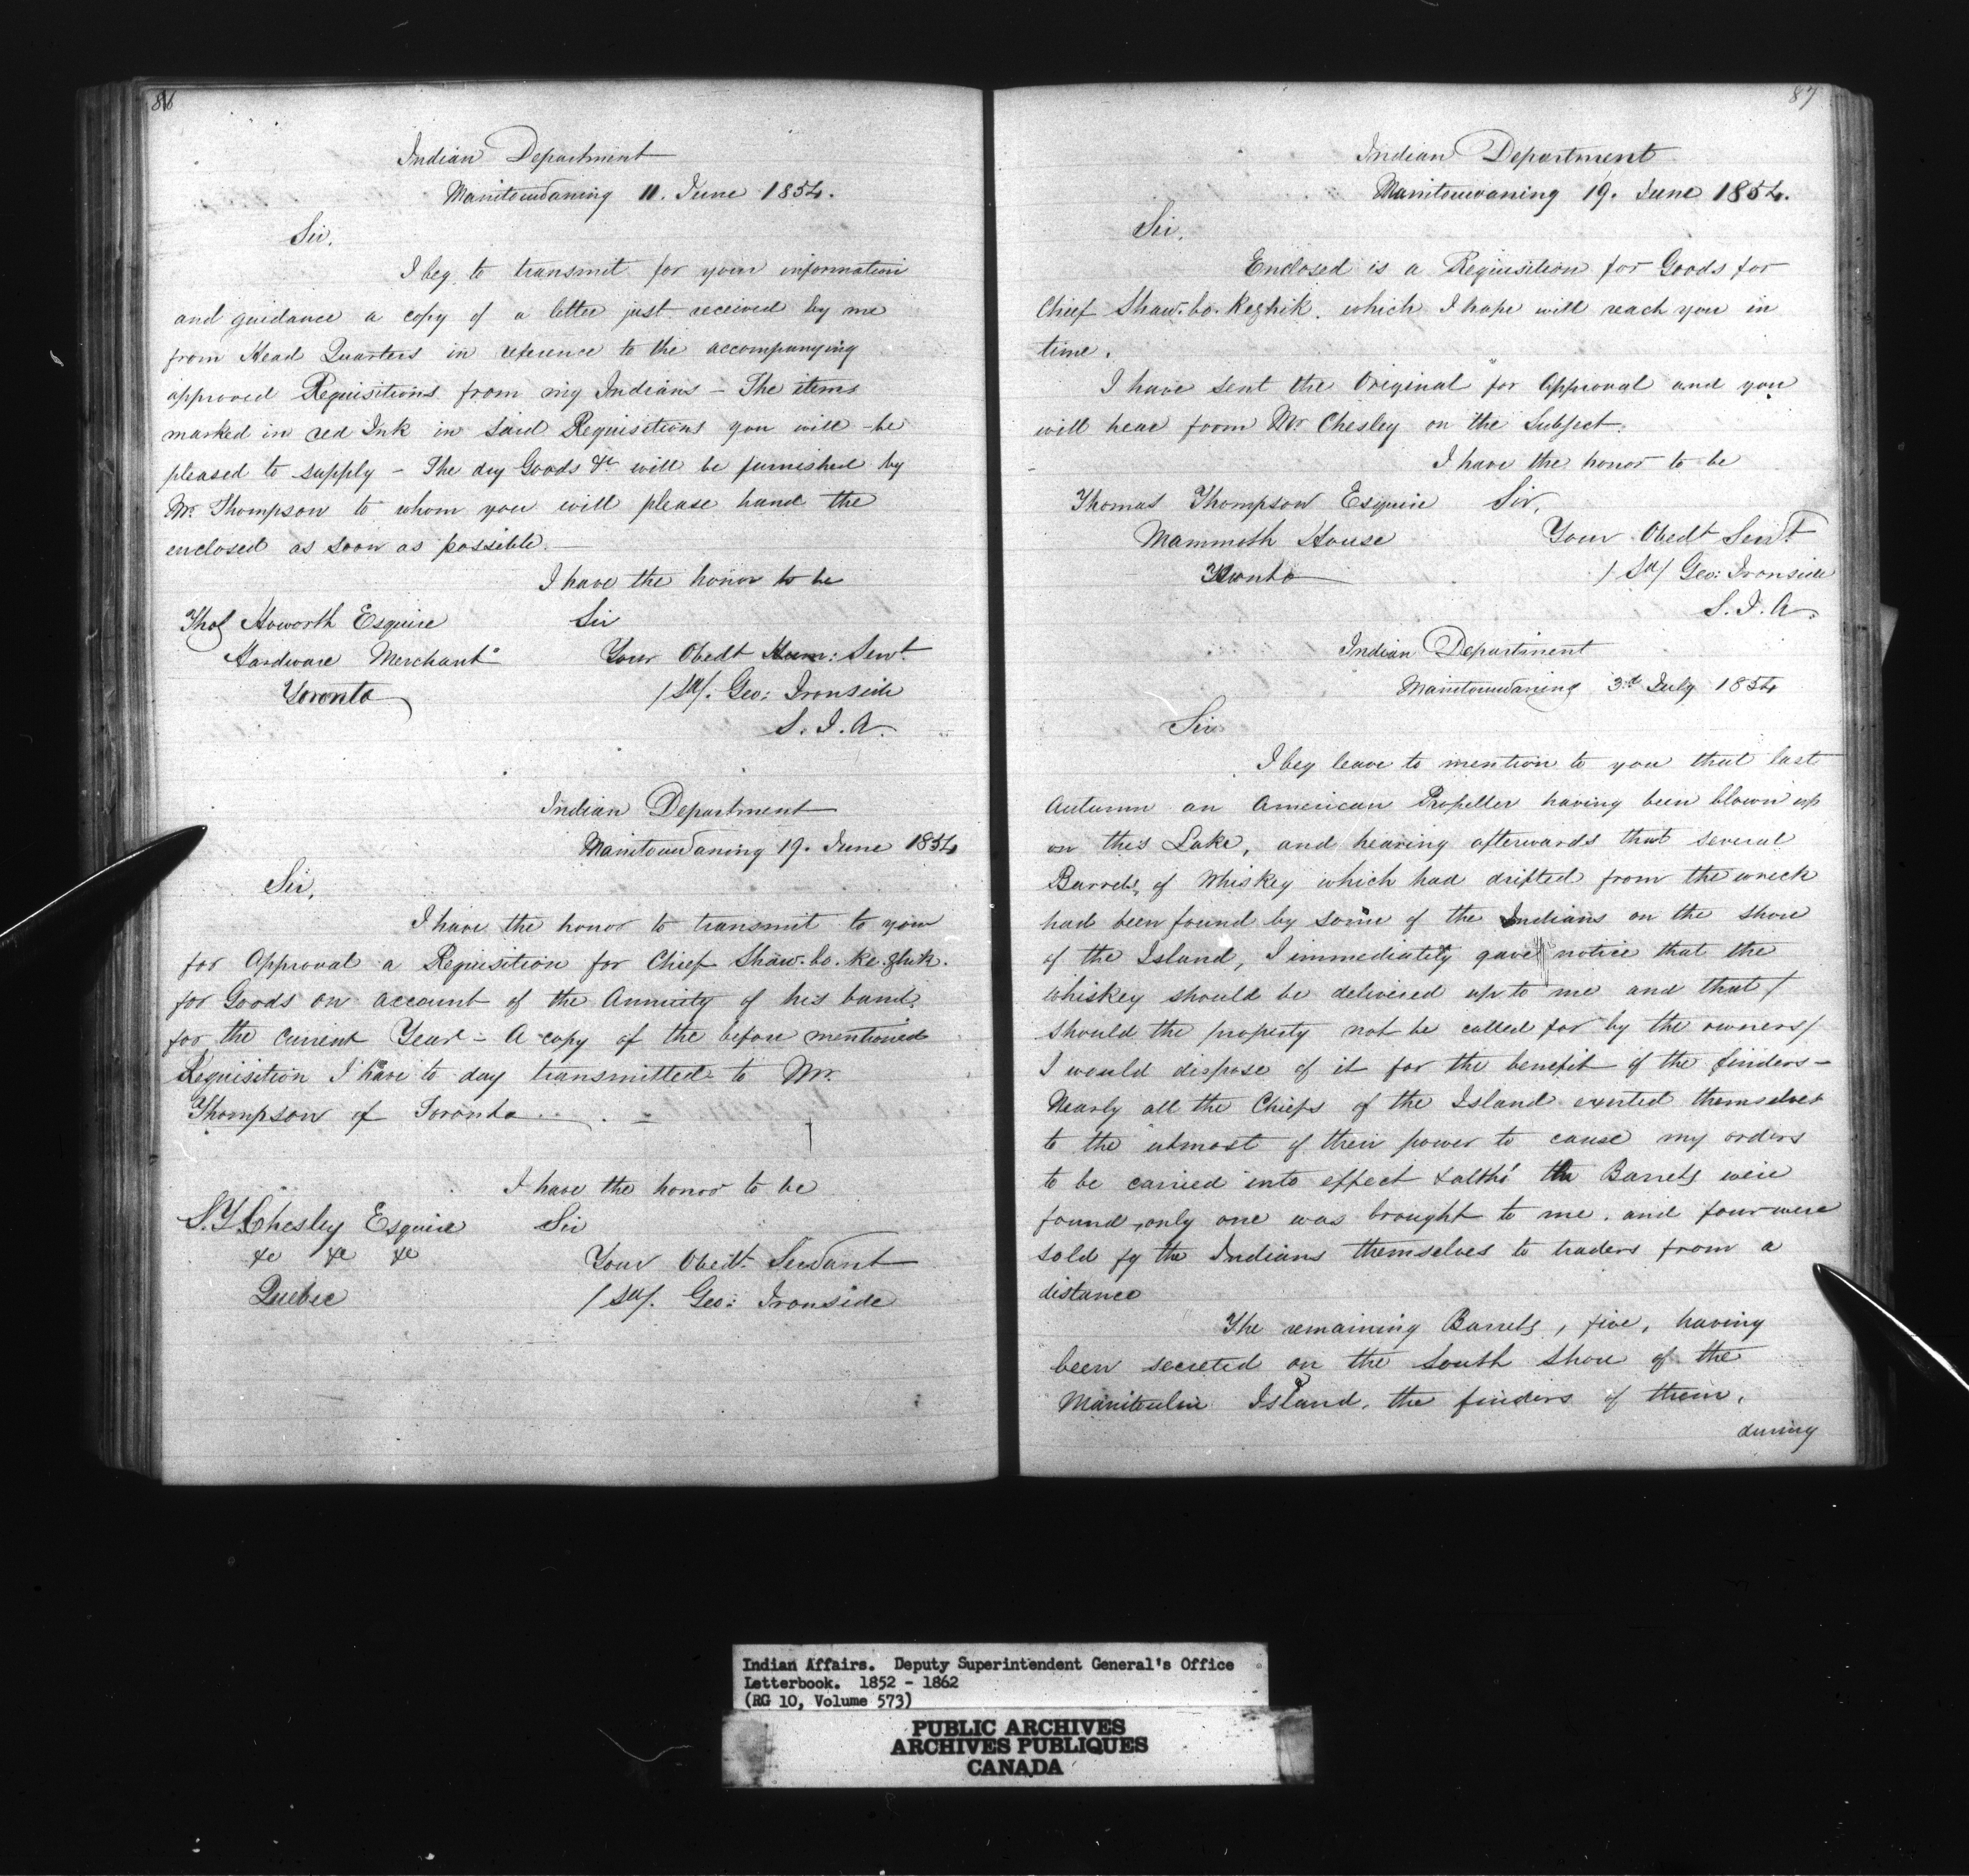 86
Indian Department
Manitowaning 11. June 1854.
Sir,
I beg to transmit for your information
and guidance a copy of a letter just received by me
from Head Quarters in reference to the accompanying
approved Requisitions from my Indians – The items
marked in red Ink in said Requisitions you will be
pleased to supply – The dry Goods &c will be furnished by
Mr. Thompson to whom you will please hand the
enclosed as soon as possible.
I have the honor to be
Thos Haworth Esquire Sir
Hardware Merchant Your Obedt Hum: Servt
Toronto /Sd/. Geo: Ironside
S. I. A.
Indian Department
Manitowaning 19. June 1854
Sir,
I have the honor to transmit to you
for Approval a Requisition for Chief Shaw.bo.ke.zhik.
for Goods on account of the Annuity of his band
for the Current Year – A copy of the before mentioned
Requisition I have to day transmitted to Mr.
Thompson of Toronto
I have the honor to be
S. Y. Chesley Esquire Sir
&c &c &c Your Obedt. Servant
Quebec /Sd/. Geo: Ironside
87
Indian Department
Manitouwaning 19. June 1854.
Sir,
Enclosed is a Requisition for Goods for
Chief Shaw.bo.kezhik. which I hope will reach you in
time.
I have sent the Original for Approval and you
will hear from Mr Chesley on the Subject.
I have the honor to be
Thomas Thompson Esquire Sir,
Mammoth House Your Obedt Servt
Toronto /Sd/ Geo: Ironside
S. I. A.
Indian Department
Manitouwaning 3.d July 1854
Sir
I beg leave to mention to you that last
Autumn an American Propeller having been blown up
on this Lake, and hearing afterwards that several
Barrels, of Whiskey which had drifted from the wreck
had been found by some of the Indians on the shore
of the Island, I immediately gave notice that the
whiskey should be delivered up to me and that /
should the property not be called for by the owners /
I would dispose of it for the benefit of the finders –
Nearly all the Chiefs of the Island exerted themselves
to the utmost of their power to cause my orders
to be carried into effect & altho' the Barrels were
found, only one was brought to me. and four were
sold by the Indians themselves to traders from a
distance
The remaining Barrels, five, having
been secreted on the South Shore of the
Manitoulin Island. the finders of them,
during
Indian Affairs. Deputy Superintendent General's Office
Letterbook. 1852 - 1862
(RG 10, Volume 573)
PUBLIC ARCHIVES
ARCHIVES PUBLIQUES
CANADA